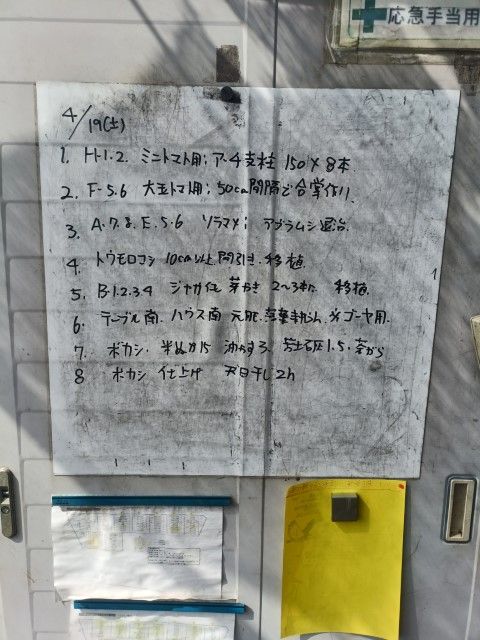 応急手当用
4/19(土)
1. H-1.2. ミニトマト用; アーチ支柱 150×8本.
2. F-5.6 大玉トマト用; 50cm間隔で合掌作り.
3. A.7.8. E.5.6 ソラマメ; アブラムシ退治.
4. トウモロコシ 10cm以上間引き. 移植
5. B-1.2.3.4 ジャガイモ 芽かき 2〜3本に 移植.
6. テーブル南. ハウス南 元肥. ゴーヤ用.
7. ボカシ. 米ぬか15 油かす3. 1.5.
8 ボカシ 仕上げ 天日干し2h